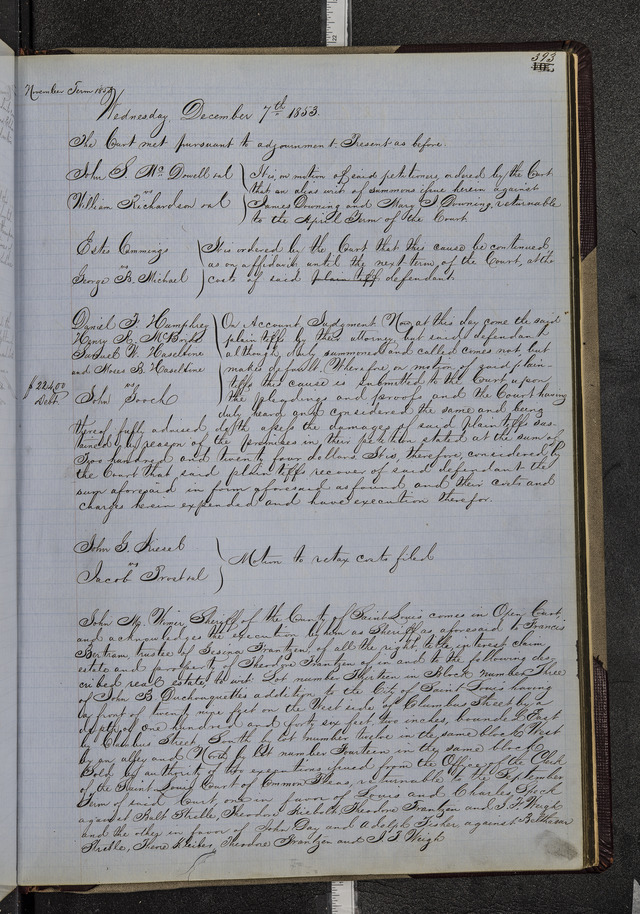 November Term 1853
393
Wednesday, December 7th 1853.
The Court met pursuant to adjournment Present as before.
John S. McDowell et al
vs
William Richardson et al
It is on motion of said petitioners, ordered by the Court
that an alias writ of summons issue herein against
James Downing and Mary Downing, returnable
to the April Term of the Court
Estes Cummings
vs
George B. Michael
It is ordered by the Court that this cause be continued,
as on affidavit until the next term of the Court, at the
costs of said plaintiff defendant.
$224.00
Debt.
Daniel F. Humphrey
Henry McBride
Samuel W. Haseltine
and Haseltine
vs
John Gooch
On Account Judgment Now at this day come the said
plaintiffs by their attorney, but said defendant
although duly summoned and called comes not but
makes default. Therefore on motion of said plain-
tiffs this cause is submitted to the Court upon
the pleadings and proofs, and the Court having
duly heard and considered the same and being
thereof fully advised doth assess the damages of said plaintiffs sus-
tained by reason of the premises in their petition stated at the sum of
Two hundred and twenty four dollars It is, therefore, considered by
the Court that said plaintiffs recover of said defendant the
sum aforesaid in form aforesaid as found and their costs and
charges herein expended and have execution therefor.
John G. Kiesel
vs
Jacob et al
Motion to retax costs filed
John M. Wimer Sheriff of the County of Saint Louis comes in Open Court,
and acknowledges the execution by him as Sheriff as aforesaid to Francis
Bertram, trustee of Gesina Frantzen, of all the right, title, interest claim
estate and property of Theodore Frantzen of in and to the following des-
cribed real estate, to wit: Lot number Thirteen in Block number Three
of John B. Duchouquettes addition to the City of Saint Louis having
a front of twenty nine feet on the West side of Columbus Street by a
depth of one hundred and forty six feet two inches, bounded East
by Columbus Street, South by lot number twelve in the same block West
by an alley and North by lot number Fourteen in the same block
Sold by authority of two executions issued from the Office of the Clerk
of the Saint Louis Court of Common Pleas, returnable to the September
Term of said Court, one in favor of Louis and Charles Speck
against Balt Streble, Theodore Theodore Frantzen and J. F. Weigh
and the other in favor of John Day and Adolph Fisher against Balthasar
Streble, Theodore Frantzen and J F Weigh